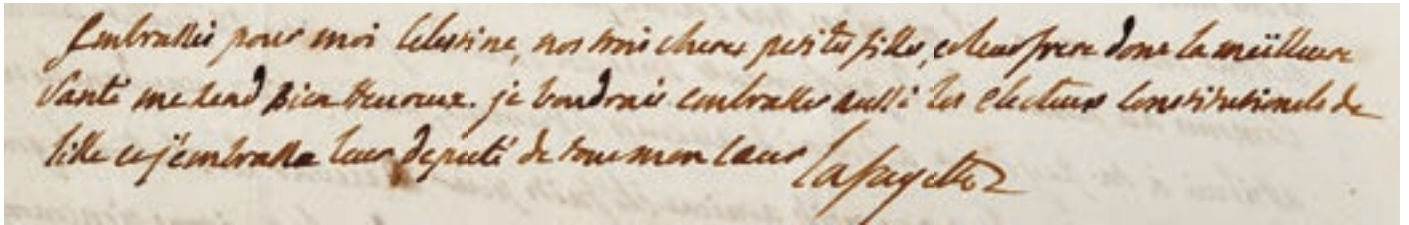 Embrassés pour moi Celestine, nos trois cheres petites filles, et leur frere dont la meilleure
santé me rend bien heureux. je voudrais embrasser aussi les electeurs constitutionels de
lille et j'embrasse leur deputé de tout mon coeur Lafayette